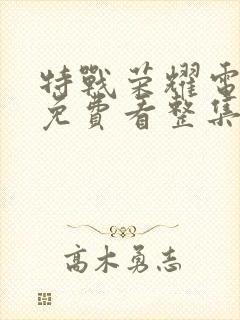 特戰荣耀電
免費看整集
高木勇志